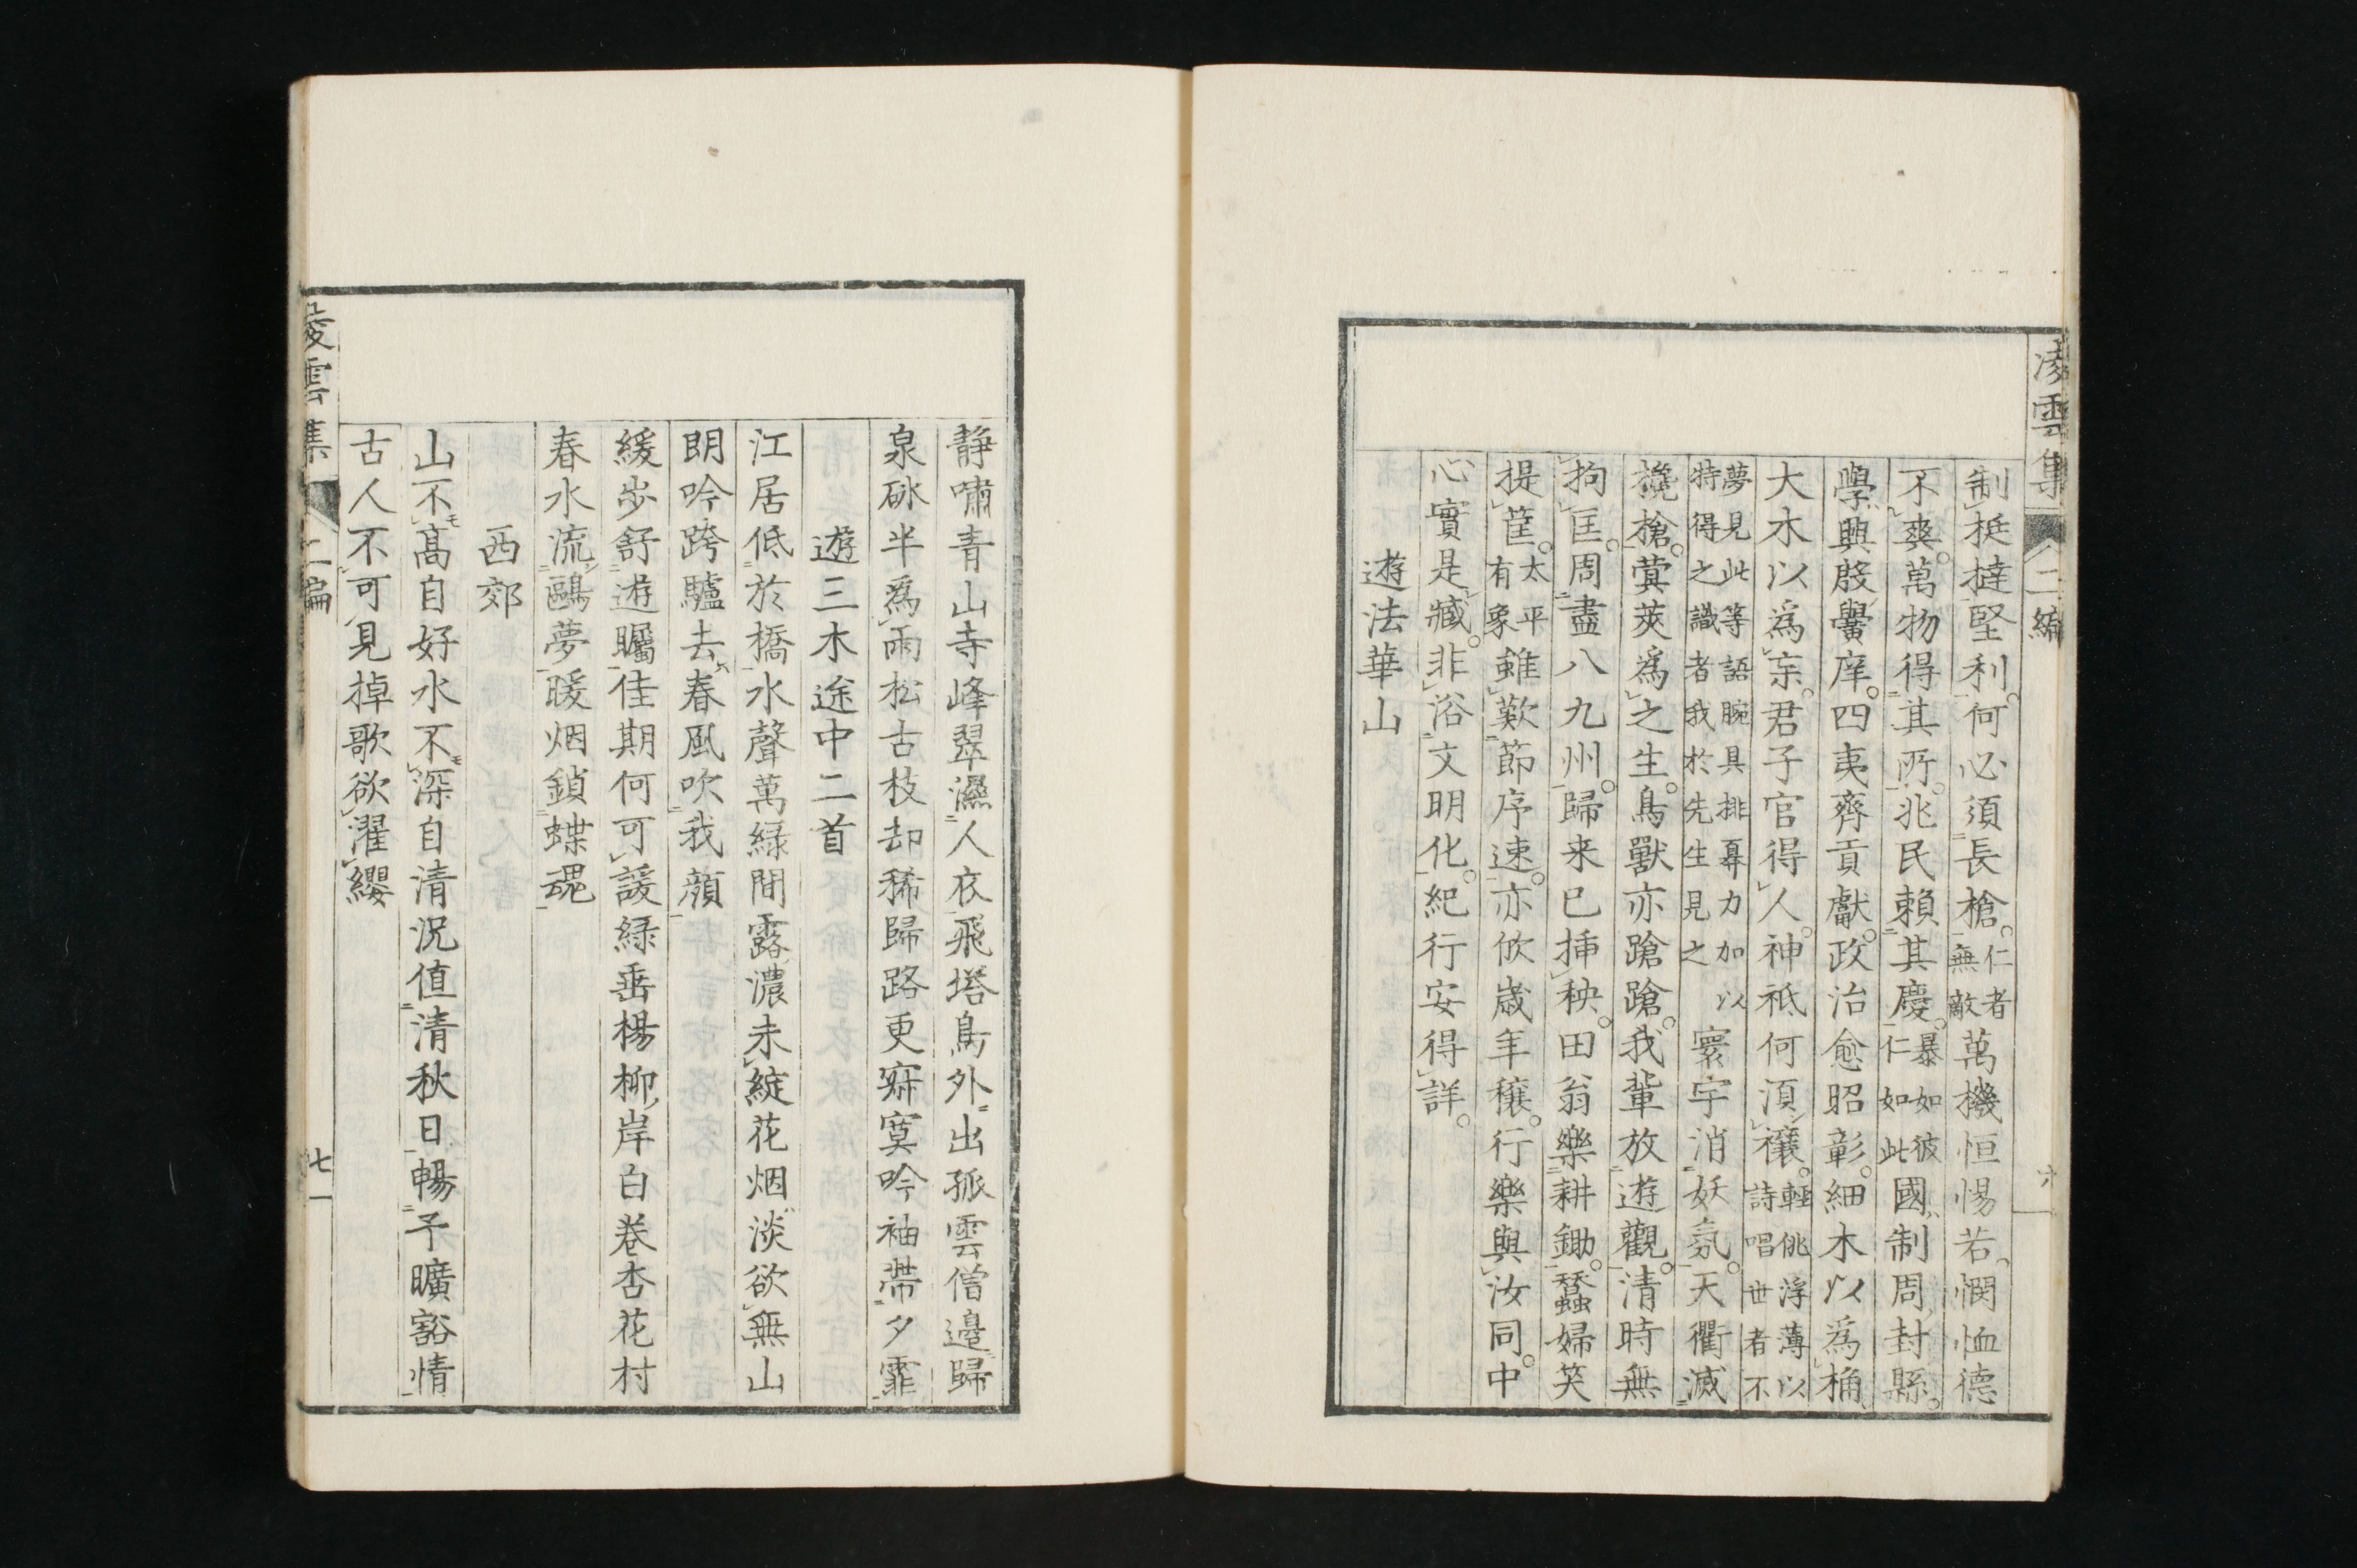 凌雲集 二編 六
制挺撻堅利。何必須長槍。仁者無敵萬機恒惕若。憫恤德
不爽。萬物得其所。兆民賴其慶。暴如彼仁如此國制周封縣。
學興殷黌庠。四夷齊貢獻。政治愈昭彰。細木以爲桷。
大木以爲宗。君子官得人。神祗何須禳。輕佻浮薄以詩唱世者不
夢見此等語腕具排奡力加以特得之識者我於先生見之寰宇消妖氛。天衢滅
攙槍。蓂莢爲之生。鳥獸亦蹌蹌。我輩放遊觀。清時無
拘匡。周盡八九州。歸来已挿秧。田翁樂耕鋤。蠶婦笑
提筐。太平有象雖歎節序速。亦攸歳年穰。行樂與汝同。中
心實是臧。非浴文明化。紀行安得詳。
遊法華山
静嘯青山寺峰翠濕人衣飛塔鳥外出孤雲僧邉歸
泉砅半爲雨松古枝却稀歸路更寂寞吟袖帶夕霏
遊三木途中二首
江居低於橋水聲萬緑間露濃未綻花烟淡欲無山
朗吟跨驢去春風吹我顔
緩歩舒遊矚佳期何可諼緑垂楊柳岸白卷杏花村
春水流鷗夢暖烟鎖蝶魂
西郊
山不髙自好水不深自清況値清秋日暢予曠豁情
古人不可見掉歌欲濯纓
凌雲集 二編 七